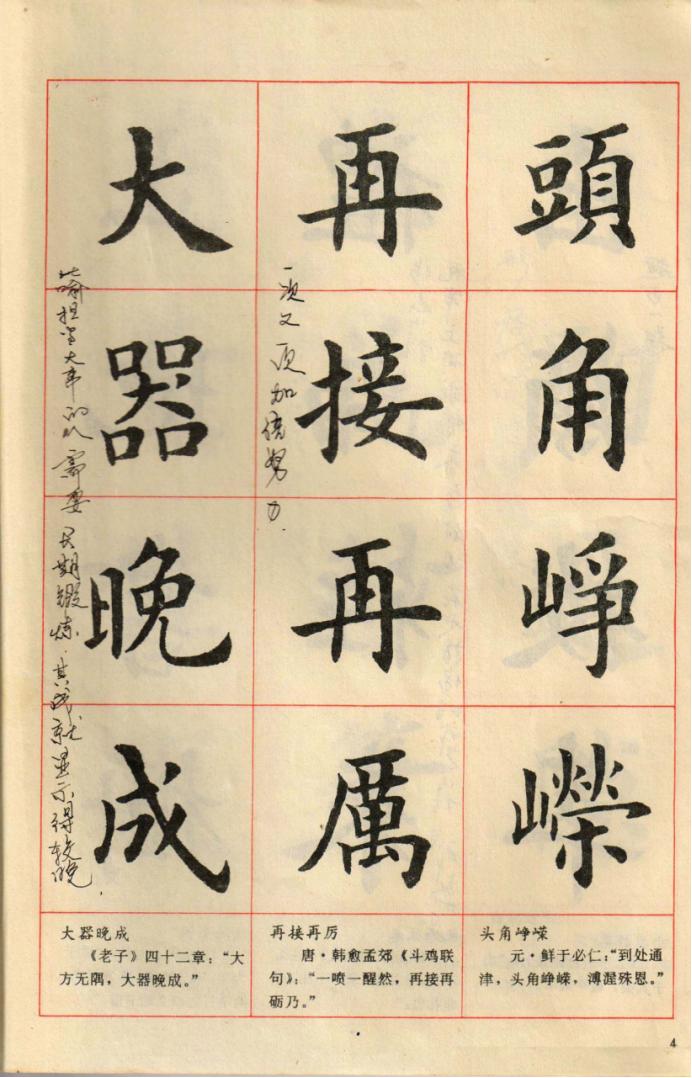 頭角崢嶸
再接再厲
一次又一次加倍努力.
大器晚成
比喻担当大事的人需要长期锻炼.其成就显示得较晚.
头角峥嵘
元·鲜于必仁：“到处通
津，头角峥嵘，溥渥殊恩。”
再接再厉
唐·韩愈孟郊《斗鸡联
句》：“一喷一醒然，再接再
砺乃。”
大器晚成
《老子》四十二章：“大
方无隅，大器晚成。”
4